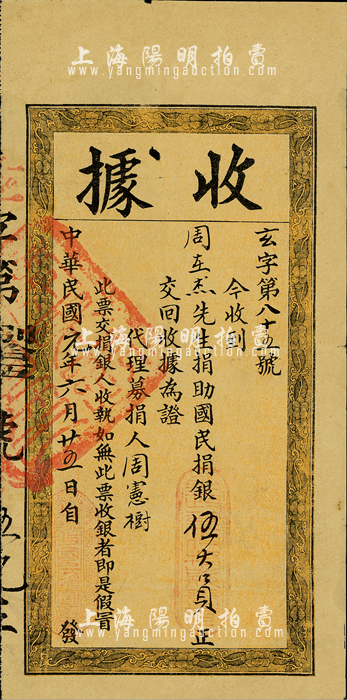 上海陽明拍賣
www.yangmingauction.com
收據
玄字第八十五號
今收到
周至杰先生捐助國民捐銀伍大員正
交回收據為證
代理募捐人周憲樹
此票交捐銀人收執如無此票收銀者即是假冒
中華民國元年六月廿五日自發
字第
號
上海陽明拍賣
www.yangmingauction.com